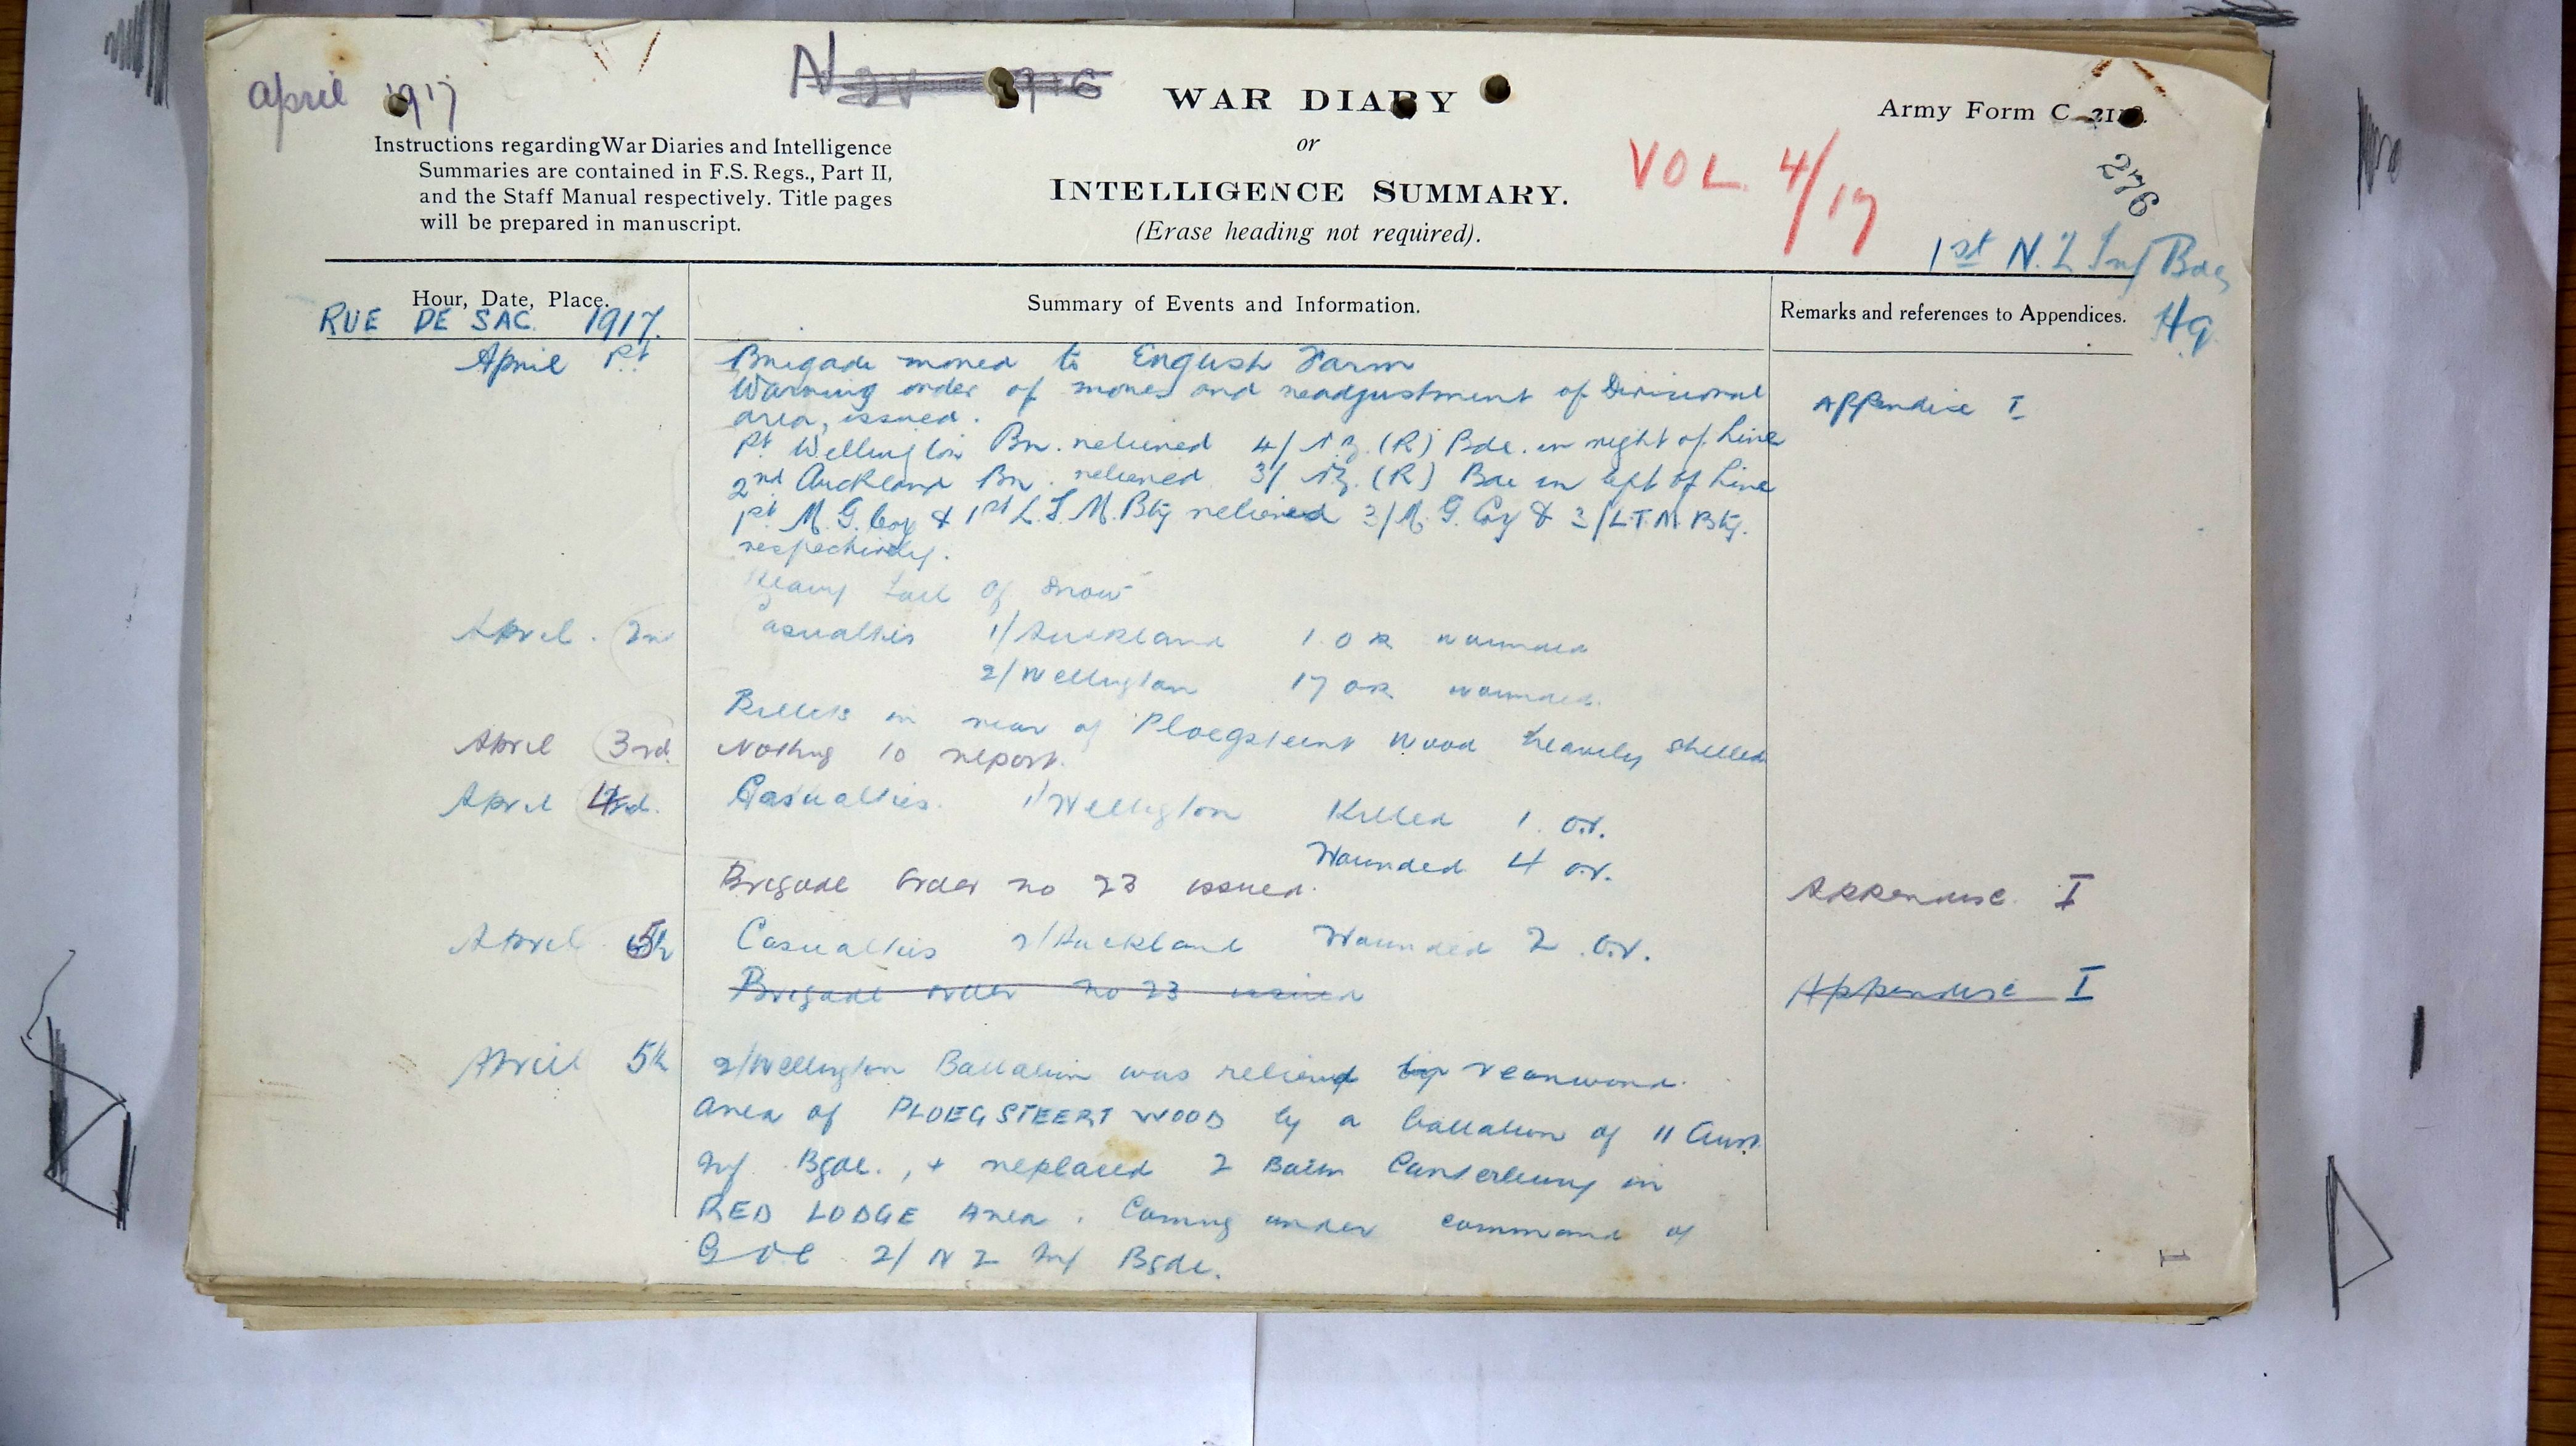 April 1917
Nov 1916
WAR DIARY
or
INTELLIGENCE SUMMARY.
(Erase heading not required).
Army Form C. 2118.
Instructions regarding War Diaries and Intelligence
Summaries are contained in F.S. Regs., Part II,
and the Staff Manual respectively. Title pages
will be prepared in manuscript.
VOL. 4/17
276
1st N.Z Inf Bde
Hq.
Hour, Date, Place.
Summary of Events and Information.
Remarks and references to Appendices.
RUE DE SAC. 1917.
April 1st. Brigade moved to English Farm
Warning order of moves and readjustment of Divisional
area, issued. Appendix I
1st Wellington Bn. relieved 4/ N.Z. (R) Bde. in right of Line
2nd Auckland Bn. relieved 3/ N.Z. (R) Bde in left of Line
1st M.G. Coy & 1st L.T.M. Bty relieved 3/M.G. Coy & 3/L.T.M. Bty.
respectively.
Heavy fall of snow
April. 2n Casualties 1/Auckland 1. OR wounded
2/Wellington 17 OR wounded.
Billets in rear of Ploegsteert Wood heavily shelled
April 3rd. Nothing to report.
April 4rd. Casualties. 1/Wellington Killed 1. o.r.
Wounded 4 o.r.
Brigade Order no 23 issued. Appendix I
April 5h Casualties 2/Auckland Wounded 2 .o.r.
Brigade order no 23 issued Appendix I
April 5th 2/Wellington Battalion was relieved rearward
area of PLOEGSTEERT WOOD by a battalion of 11 Aust.
Inf. Bgde., + replaced 2 Battn Canterbury in
RED LODGE area. Coming under command of
G O C 2/ N Z Inf Bgde.
1